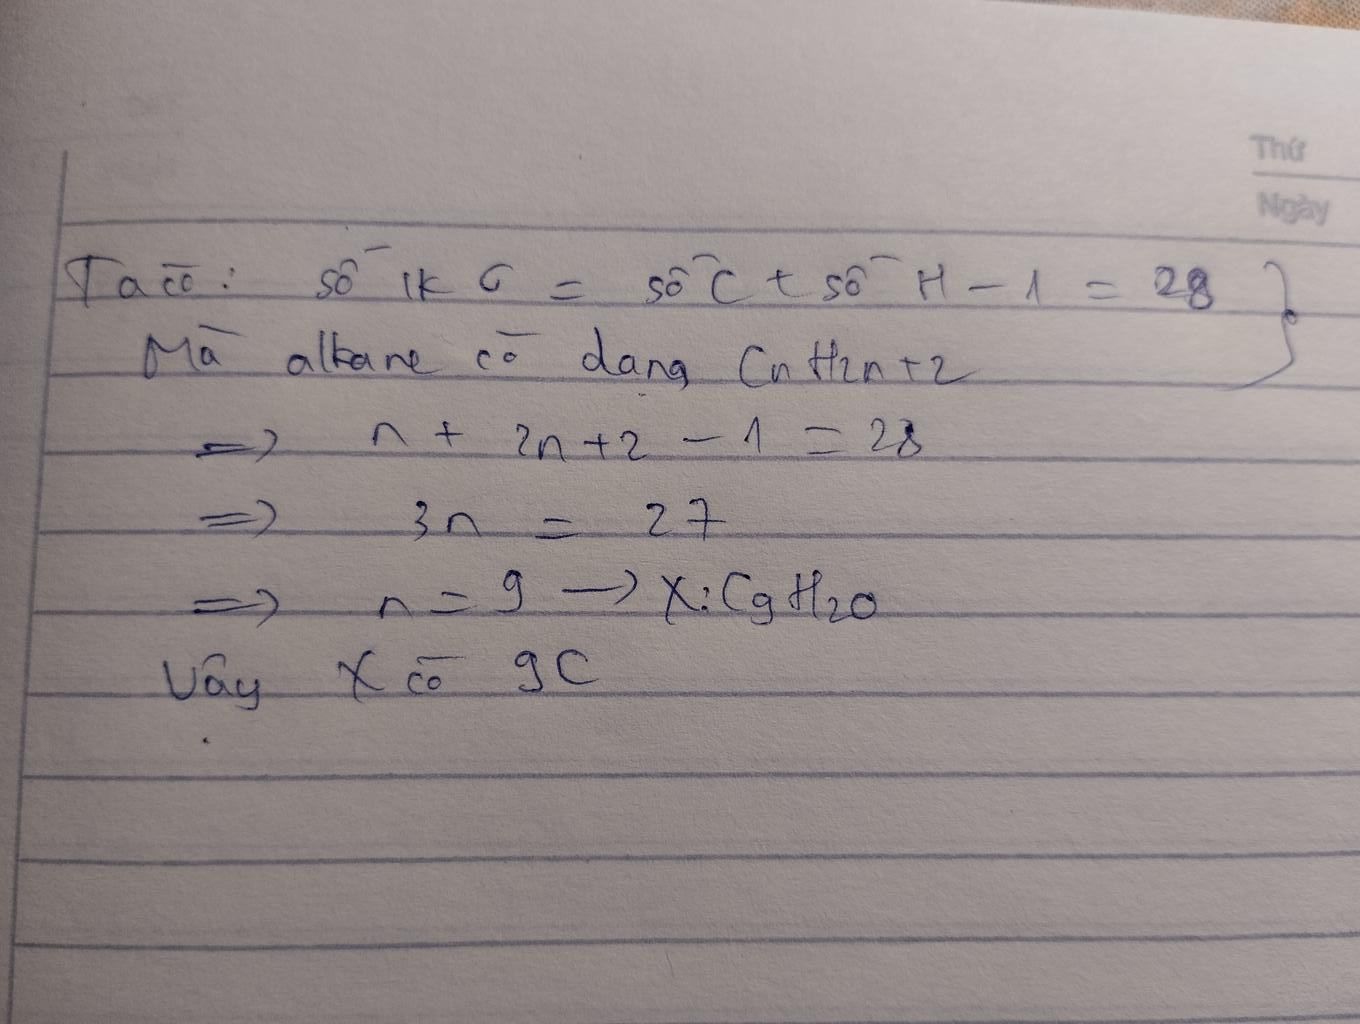 Thứ
Ngày
Ta có: số lk σ = số C + số H - 1 = 28
Mà alkane có dạng CnH2n+2
=> n + 2n+2 - 1 = 28
=> 3n = 27
=> n = 9 → X: C9H20
Vậy X có 9C